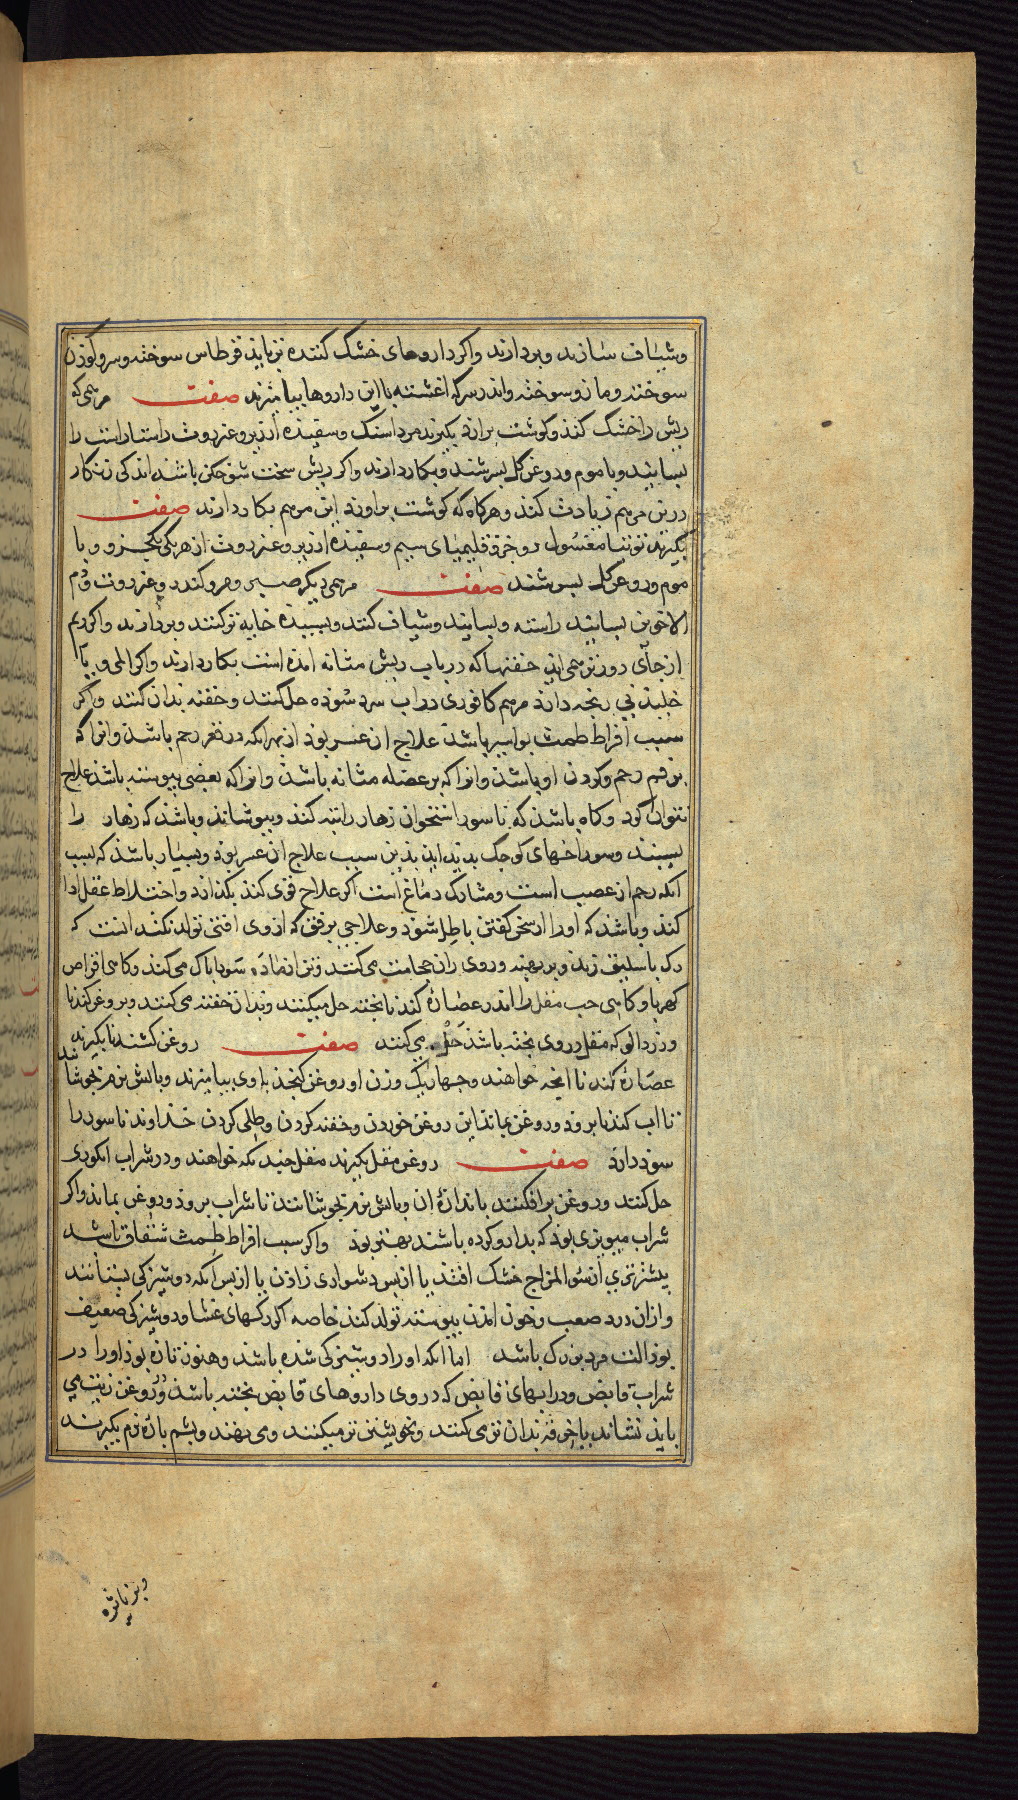 وشیاف سازند وبردارند واکر داروهای خشک کننده تر باید قرطاس سوخته وسرو کوزن
سوخته ومازو سوخته واندر سرکه اغشته با این داروها بیامیزند صفت مرهمی که
ریش را خشک کند وکوشت براند بکیرند مرداسنک وسفیده ارزیر وعنزروت راستاراست را
بسایند وبا موم وروغن کل بسرشند وبکار دارند واکر ریش سخت شوخکن باشد اندکی زنکار
درین مرهم زیادت کنند وهرکاه که کوشت براورد این مرهم بکار دارند صفت
بکیرند توتیا مغسول وخرف قلیمیای سیم وسفیده ارزیر وعنزروت از هر یکی یکجزو وبا
موم وروغن کل بسرشند صفت مرهمی دیکر صبر ومر وکندر وعنزروت ودم
الاخوین بسایند راسته وبسایند وشیاف کنند وبسپیده خایه تر کنند وبردارند واکر ریم
از جای دورتر همی اید حقنها که در باب ریش مثانه امده است بکار دارند واکر المی وبا
خلیدنی رنجه دارد مرهم کافوری در اب سرد شونده حل کنند وحقنه بدان کنند واکر
سبب افراط طمث بواسیر باشد علاج ان عسر بود از بهر انکه در قعر رحم باشد وانرا که
بر فم رحم وکردن او باشد وانرا که بر عضله مثانه باشد وانرا که بعضی پیوسته باشد علاج
نتوان کرد وکاه باشد که ناسور استخوان زهار را تبه کند وبپوشاند وباشد که زهار را
بسنبد وسوراخهای کوچک بدید اید بدین سبب علاج ان عسر بود وبسیار باشد که بسبب
انکه رحم از عصب است ومشارک دماغ است اکر علاج قوی کنند بکدازد واختلاط عقل ادا
کند وباشد که اورا از سخن کفتن باطل شود وعلاجی برفق که ازوی افتی تولد نکند انست که
رک باسلیق زنند وبر پهنه وروی ران حجامت می کنند وتن از ماده سودا پاک می کنند وکاهی اقراص
کهربا وکاهی حب مقل را اندر عصاره کندنا پخته حل میکنند وبدان حقنه می کنند وبروغن کندنا
وزردالو که مقل در وی پخته باشد حل می کنند صفت روغن کندنا بکیرند
عصاره کندنا انچه خواهند وچهار یک وزن او روغن کنجد با وی بیامیزند وباتش نرم بجوشانند
تا اب کندنا برود وروغن بماند این روغن خوردن وحقنه کردن وطلی کردن خداوند ناسور را
سود دارد صفت روغن مقل بکیرند مقل چندانکه خواهند ودر شراب انکوری
حل کنند وروغن برافکنند باندازه ان وباتش نرم بجوشانند تا شراب برود وروغن بماند واکر
شراب میویزی بود که بدارو کرده باشند بهتر بود واکر سبب افراط طمث شقاق باشد
بیشتر تری از سؤ المزاج خشک افتد یا از پس دشواری زادن یا از پس انکه دوشیزکی بستانند
وازان درد صعب وخون امدن پیوسته تولد کند خاصه اکر رکهای غشاء دوشیزکی ضعیف
بود الت مرد بزرک باشد اما انکه اورا دوشیزکی شده باشد وهنوز تازه بود اورا در
شراب قابض ودر ابهای قابض که در وی داروهای قابض پخته باشد ودروغن زیت می
باید نشاند یا خرقه بدان تر می کنند وبخویشتن تر میکنند ومی نهند وپشم پاره نرم بکیرند